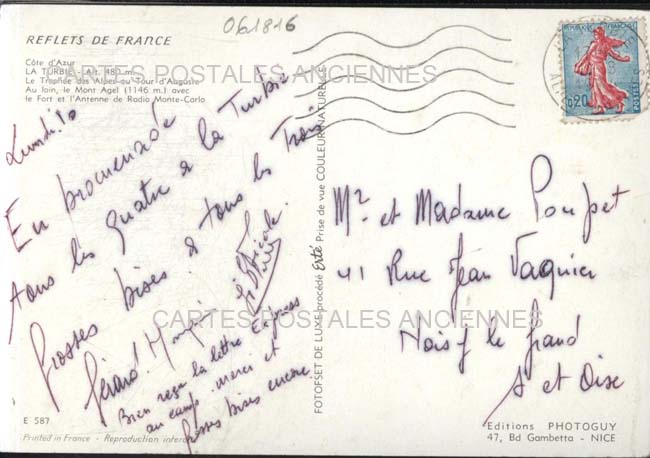 061816
REFLETS DE FRANCE
Côte d'Azur
LA TURBIE - Alt. 480 m.
Le Trophée des Alpes ou Tour d'Auguste
Au loin, le Mont Agel (1146 m.) avec
le Fort et l'Antenne de Radio Monte-Carlo
CARTES POSTALES ANCIENNES
Lundi 10
En promenade
tous les quatre à la Turbie
grosses bises à tous les trois
Gérard
Bien reçu la lettre Express
au camp. merci et
grosses bises encore
E 587
Printed in France - Reproduction
FOTOFSET DE LUXE procédé Erté Prise de vue COULEUR NATURELLE
0,20
POSTES
Mr et Madame Poupet
41 Rue Jean Vaquier
Noisy le Grand
S et Oise
CARTES POSTALES ANCIENNES
Editions PHOTOGUY
47, Bd Gambetta - NICE